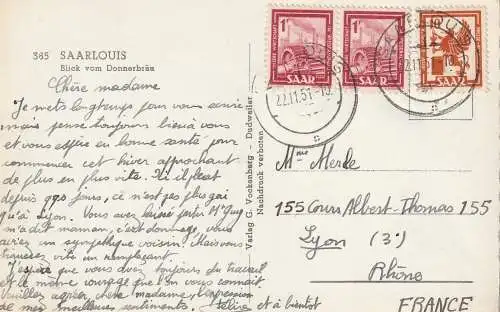 365 SAARLOUIS
Blick vom Donnerbräu
Chère madame
Je mets longtemps pour vous écrire
mais pense toujours bien à vous
et vous espère en bonne santé pour
commencer cet hiver approchant
de plus en plus vite. Ici il pleut
depuis qqs jours, ce n'est pas plus gai
qu'à Lyon. Vous avez laissé partir Mr Guy
m'a dit maman, c'est dommage, vous
aviez un sympathique voisin! Mais vous
trouverez vite un remplaçant.
J'espère que vous avez toujours du travail
et ce même courage que l'on vous connait
Veuillez agréer chère madame, l'expression
de mes meilleurs sentiments.
et à bientôt
Verlag G. Vockenberg - Dudweiler
Nachdruck verboten
1F
SAAR
1F
SAAR
SAAR
22.11.51-18
Mme Merle
155 Cours Albert-Thomas 155
Lyon (3°)
Rhône
FRANCE